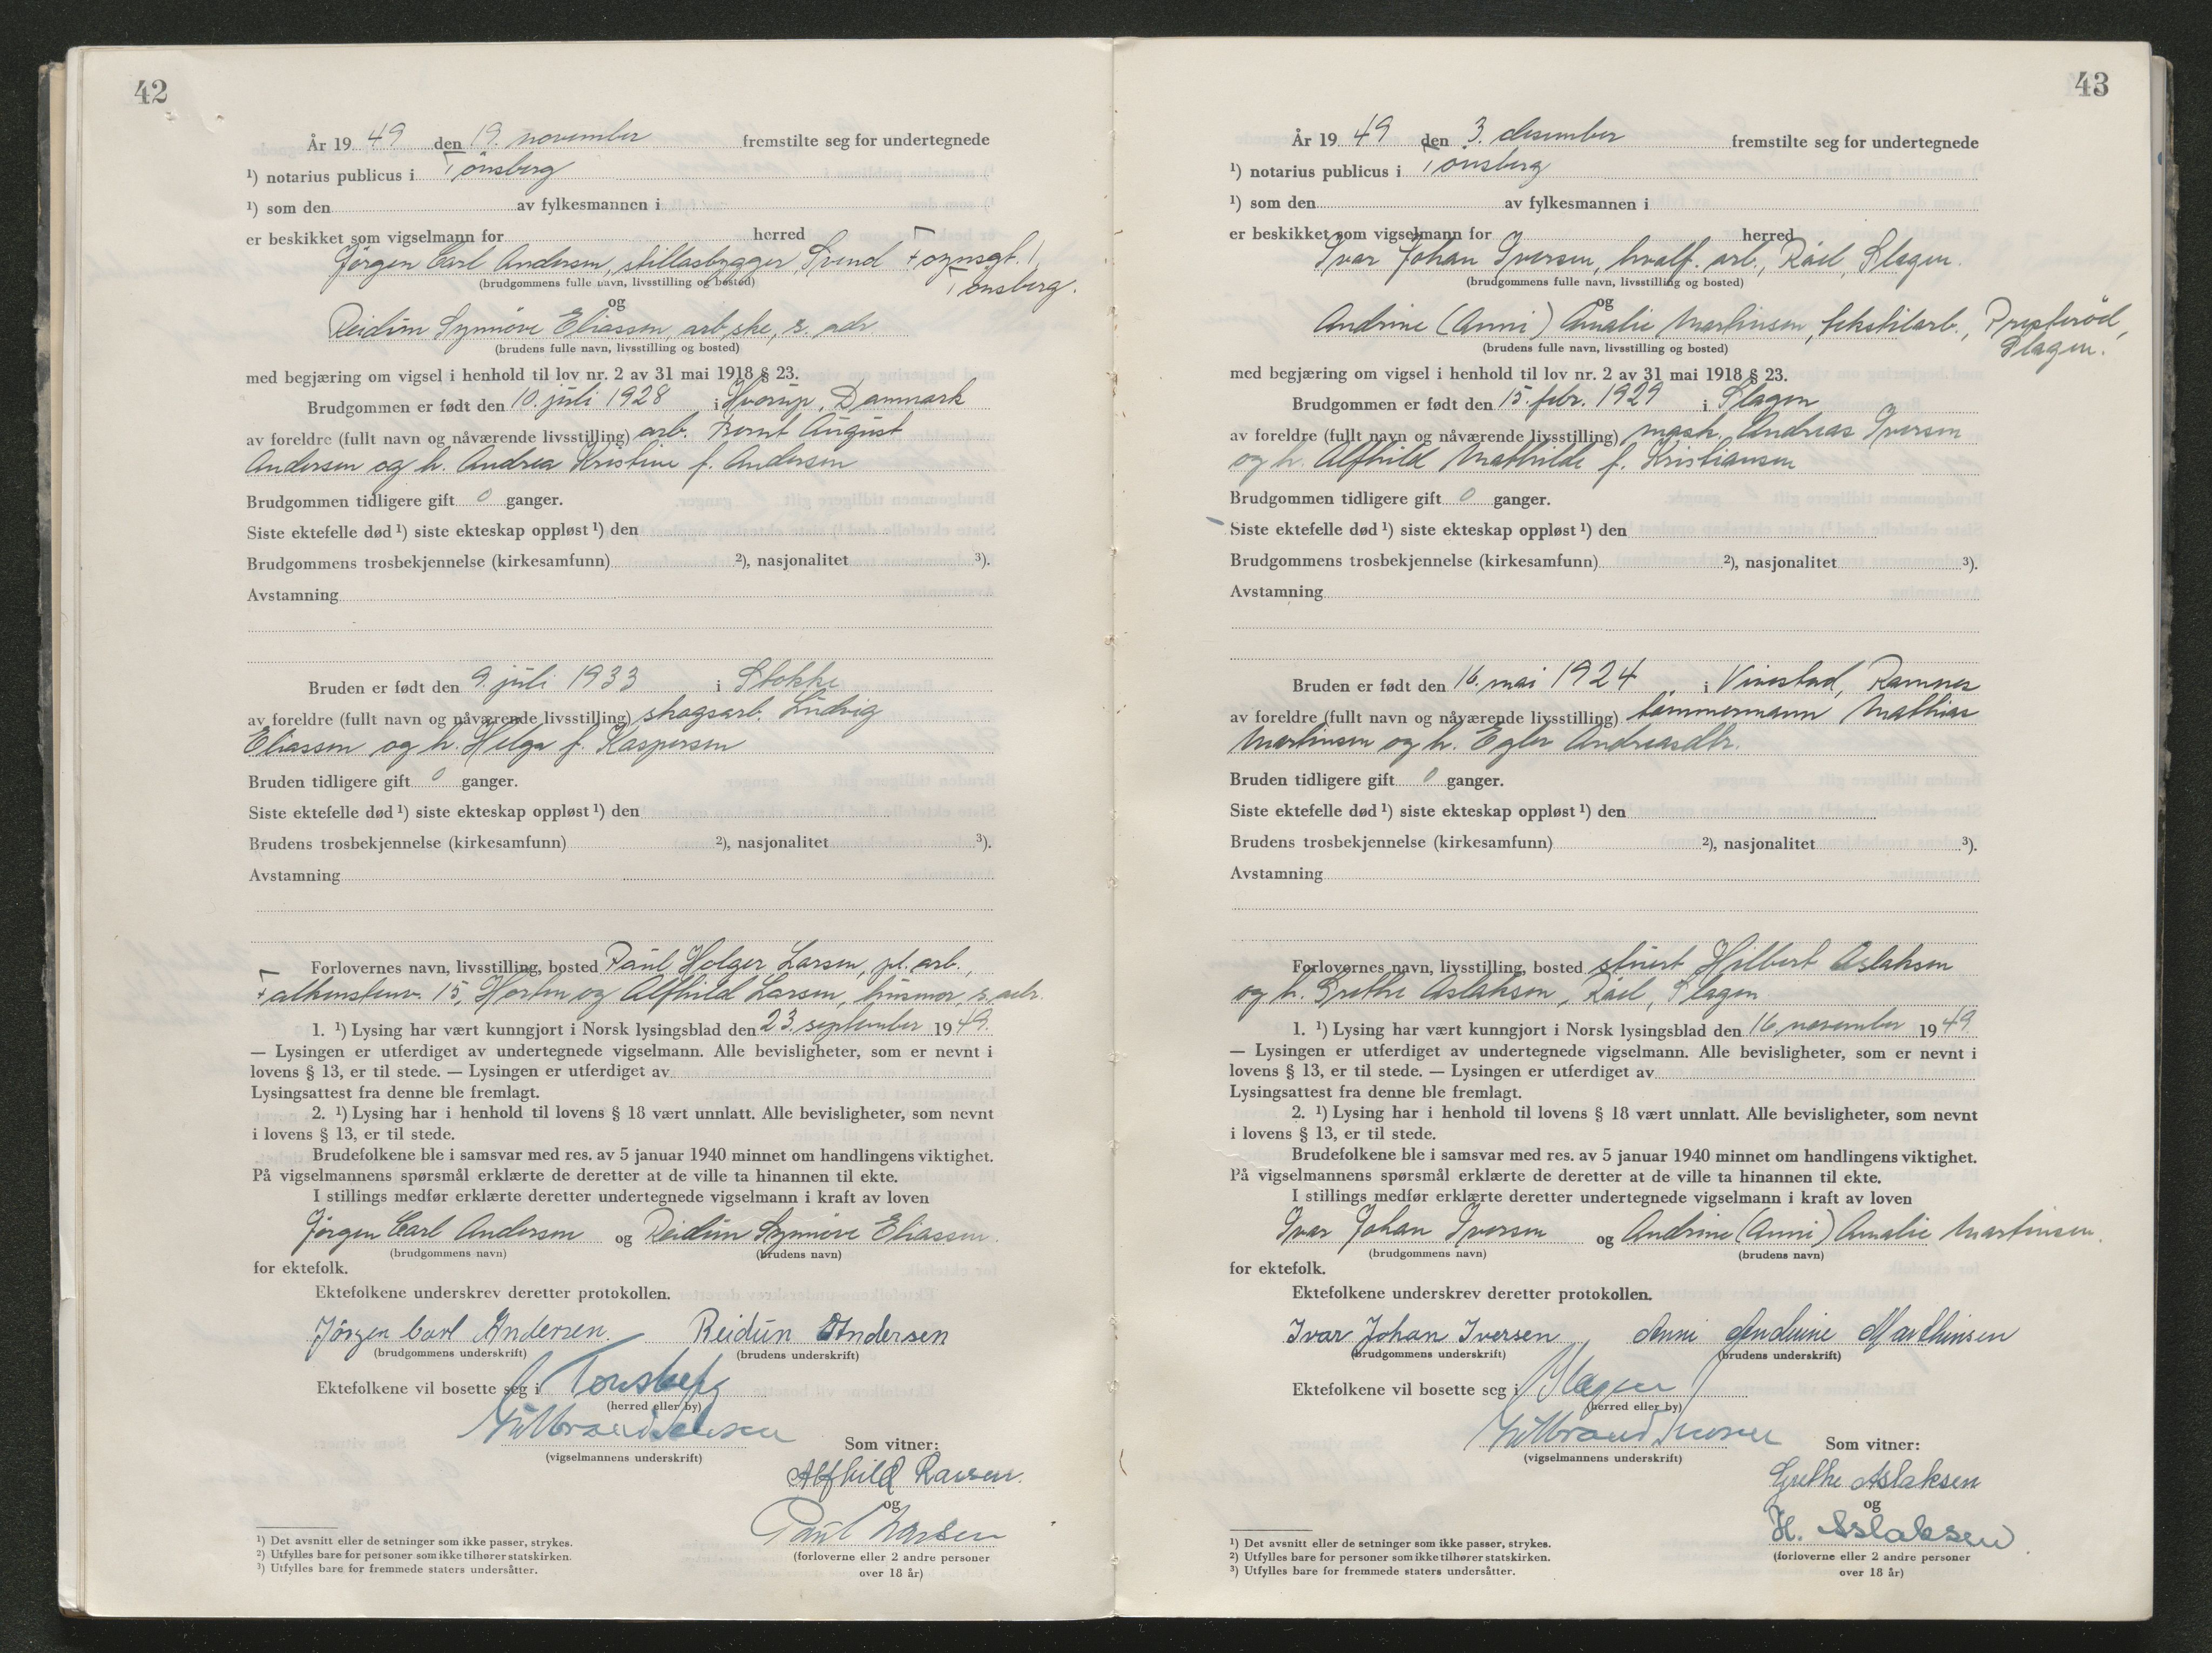 42
År 19 49 den 19. november fremstilte seg for undertegnede
¹) notarius publicus i Tönsberg
¹) som den av fylkesmannen i
er beskikket som vigselmann for herred
Jörgen Carl Andersen, stillasbygger, Svend Foynsgt. 1,
Tönsberg.
(brudgommens fulle navn, livsstilling og bosted)
og
Reidun Synnöve Eliassen, arb.ske, s. adr.
(brudens fulle navn, livsstilling og bosted)
med begjæring om vigsel i henhold til lov nr. 2 av 31 mai 1918 § 23.
Brudgommen er født den 10. juli 1928 i Hvorup, Danmark
av foreldre (fullt navn og nåværende livsstilling) arb. Bernt August
Andersen og h. Andrea Kristine f. Andersen
Brudgommen tidligere gift 0 ganger.
Siste ektefelle død ¹) siste ekteskap oppløst ¹) den
Brudgommens trosbekjennelse (kirkesamfunn) ²), nasjonalitet ³).
Avstamning
Bruden er født den 9. juli 1933 i Stokke
av foreldre (fullt navn og nåværende livsstilling) skogsarb. Ludvig
Eliassen og h. Helga f. Kaspersen
Bruden tidligere gift 0 ganger.
Siste ektefelle død ¹) siste ekteskap oppløst ¹) den
Brudens trosbekjennelse (kirkesamfunn) ²), nasjonalitet ³).
Avstamning
Forlovernes navn, livsstilling, bosted Paul Holger Larsen, pl. arb.,
Falkenstenv. 15, Horten og Alfhild Larsen, husmor, s. adr.
1. ¹) Lysing har vært kunngjort i Norsk lysingsblad den 23. september 19 49.
— Lysingen er utferdiget av undertegnede vigselmann. Alle bevisligheter, som er nevnt i
lovens § 13, er til stede. — Lysingen er utferdiget av
Lysingsattest fra denne ble fremlagt.
2. ¹) Lysing har i henhold til lovens § 18 vært unnlatt. Alle bevisligheter, som nevnt
i lovens § 13, er til stede.
Brudefolkene ble i samsvar med res. av 5 januar 1940 minnet om handlingens viktighet.
På vigselmannens spørsmål erklærte de deretter at de ville ta hinannen til ekte.
I stillings medfør erklærte deretter undertegnede vigselmann i kraft av loven
Jörgen Carl Andersen og Reidun Synnöve Eliassen.
(brudgommens navn) (brudens navn)
for ektefolk.
Ektefolkene underskrev deretter protokollen.
Jörgen Carl Andersen. Reidun Andersen
(brudgommens underskrift) (brudens underskrift)
Ektefolkene vil bosette seg i Tønsberg
(herred eller by)
(vigselmannens underskrift)
Som vitner:
Alfhild Larsen.
og
Paul Larsen
(forloverne eller 2 andre personer
over 18 år)
¹) Det avsnitt eller de setninger som ikke passer, strykes.
²) Utfylles bare for personer som ikke tilhører statskirken.
³) Utfylles bare for fremmede staters undersåtter.
43
År 19 49 den 3. desember fremstilte seg for undertegnede
¹) notarius publicus i Tönsberg
¹) som den av fylkesmannen i
er beskikket som vigselmann for herred
Ivar Johan Iversen, hvalf. arb., Råel, Slagen.
(brudgommens fulle navn, livsstilling og bosted)
og
Andrine (Anni) Amalie Martinsen, tekstilarb., Presteröd,
Slagen.
(brudens fulle navn, livsstilling og bosted)
med begjæring om vigsel i henhold til lov nr. 2 av 31 mai 1918 § 23.
Brudgommen er født den 15. febr. 1929 i Slagen
av foreldre (fullt navn og nåværende livsstilling) mask. Andreas Iversen
og h. Alfhild Mathilde f. Kristiansen
Brudgommen tidligere gift 0 ganger.
Siste ektefelle død ¹) siste ekteskap oppløst ¹) den
Brudgommens trosbekjennelse (kirkesamfunn) ²), nasjonalitet ³).
Avstamning
Bruden er født den 16. mai 1924 i Vivestad, Ramnes
av foreldre (fullt navn og nåværende livsstilling) tömmermann Mathias
Martinsen og h. Egler Andreasdtr.
Bruden tidligere gift 0 ganger.
Siste ektefelle død ¹) siste ekteskap oppløst ¹) den
Brudens trosbekjennelse (kirkesamfunn) ²), nasjonalitet ³).
Avstamning
Forlovernes navn, livsstilling, bosted stuert Hilbert Aslaksen
og h. Grethe Aslaksen, Råel, Slagen
1. ¹) Lysing har vært kunngjort i Norsk lysingsblad den 16. november 19 49.
— Lysingen er utferdiget av undertegnede vigselmann. Alle bevisligheter, som er nevnt i
lovens § 13, er til stede. — Lysingen er utferdiget av
Lysingsattest fra denne ble fremlagt.
2. ¹) Lysing har i henhold til lovens § 18 vært unnlatt. Alle bevisligheter, som nevnt
i lovens § 13, er til stede.
Brudefolkene ble i samsvar med res. av 5 januar 1940 minnet om handlingens viktighet.
På vigselmannens spørsmål erklærte de deretter at de ville ta hinannen til ekte.
I stillings medfør erklærte deretter undertegnede vigselmann i kraft av loven
Ivar Johan Iversen og Andrine (Anni) Amalie Martinsen.
(brudgommens navn) (brudens navn)
for ektefolk.
Ektefolkene underskrev deretter protokollen.
Ivar Johan Iversen, Anni Andrine Marthinsen
(brudgommens underskrift) (brudens underskrift)
Ektefolkene vil bosette seg i Slagen
(herred eller by)
(vigselmannens underskrift)
Som vitner:
Grethe Aslaksen
og
H. Aslaksen.
(forloverne eller 2 andre personer
over 18 år)
¹) Det avsnitt eller de setninger som ikke passer, strykes.
²) Utfylles bare for personer som ikke tilhører statskirken.
³) Utfylles bare for fremmede staters undersåtter.